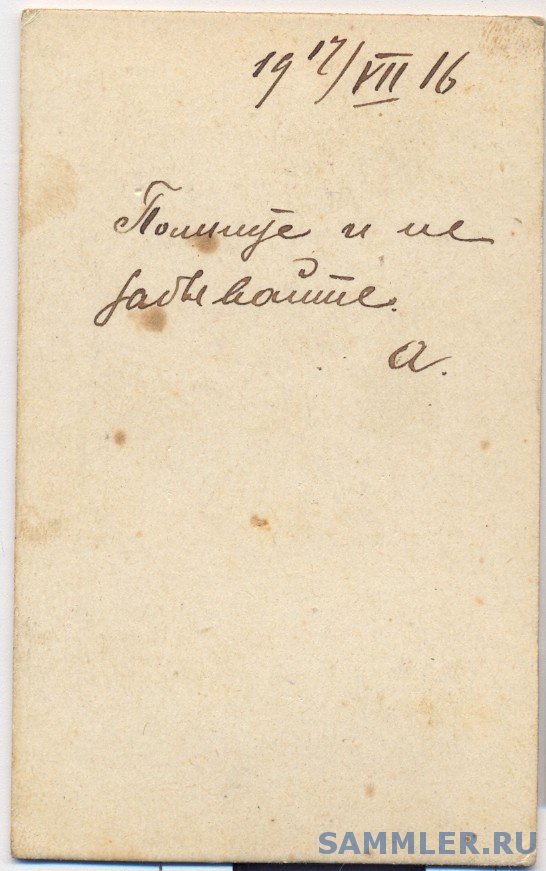 19 17/VII 16
Помните и не
забывайте.
А.
SAMMLER.RU